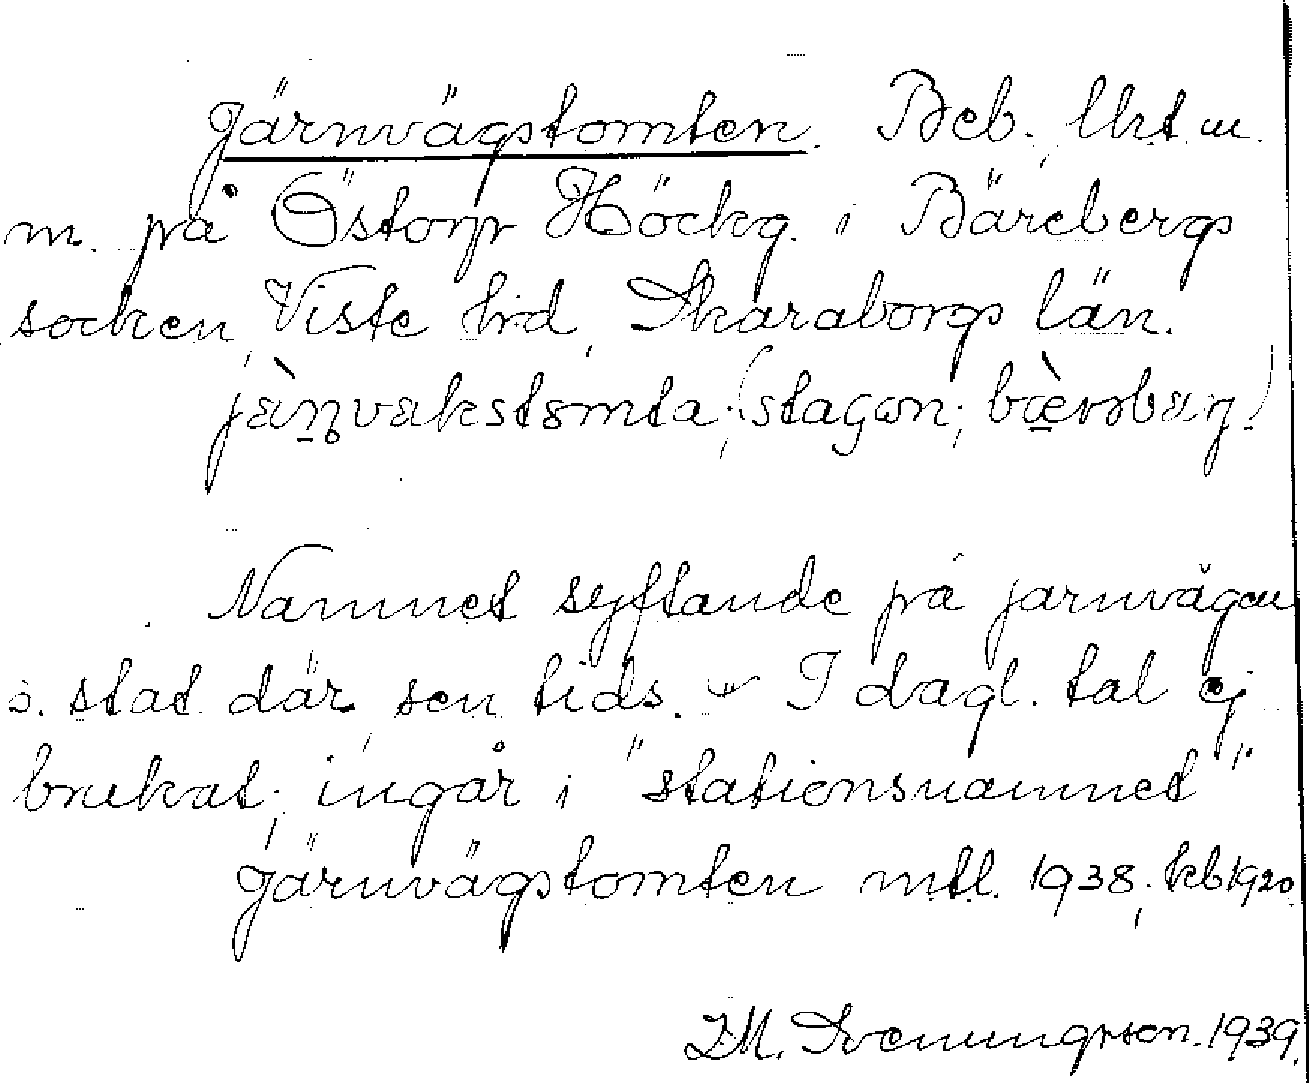 Järnvägstomten. Beb., lht. u.
m. på Östorp Höckg. i Bärebergs
socken, Viste hrd, Skaraborgs län.
jæ̀n̥vækstomta; (staʃon; bæ̀rəbærj)
Namnet syftande på järnvägen
o. stat. där sen tids. – I dagl. tal ej
brukat, ingår i "stationsnamnet"
Järnvägstomten mtl. 1938; kb 1920
Svenungsson. 1939.